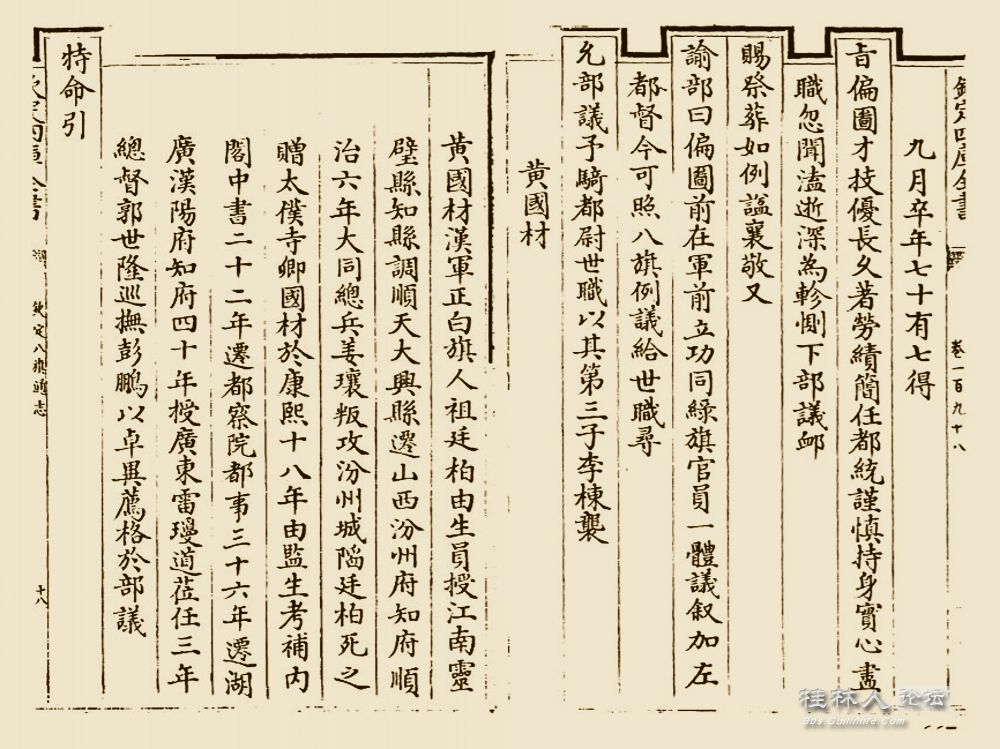 欽定四庫全書
卷一百九十八
九月卒年七十有七得
㫖偏圖才技優長久著勞績簡任都統謹慎持身實心盡
職忽聞溘逝深為軫惻下部議䘏
賜祭葬如例諡襄敬又
諭部曰偏圖前在軍前立功同綠旗官員一體議叙加左
都督今可照八旗例議給世職尋
允部議予騎都尉世職以其第三子李棟襲
黄國材
黄國材漢軍正白旗人祖廷柏由生員授江南靈
璧縣知縣調順天大興縣遷山西汾州府知府順
治六年大同總兵姜瓖叛攻汾州城陷廷柏死之
贈太僕寺卿國材於康熙十八年由監生考補内
閣中書二十二年遷都察院都事三十六年遷湖
廣漢陽府知府四十年授廣東雷瓊道莅任三年
總督郭世隆巡撫彭鵬以卓異薦格於部議
特命引
欽定四庫全書
欽定八旗通志
十八
桂林人论坛
Bbs.Guilinlife.Com